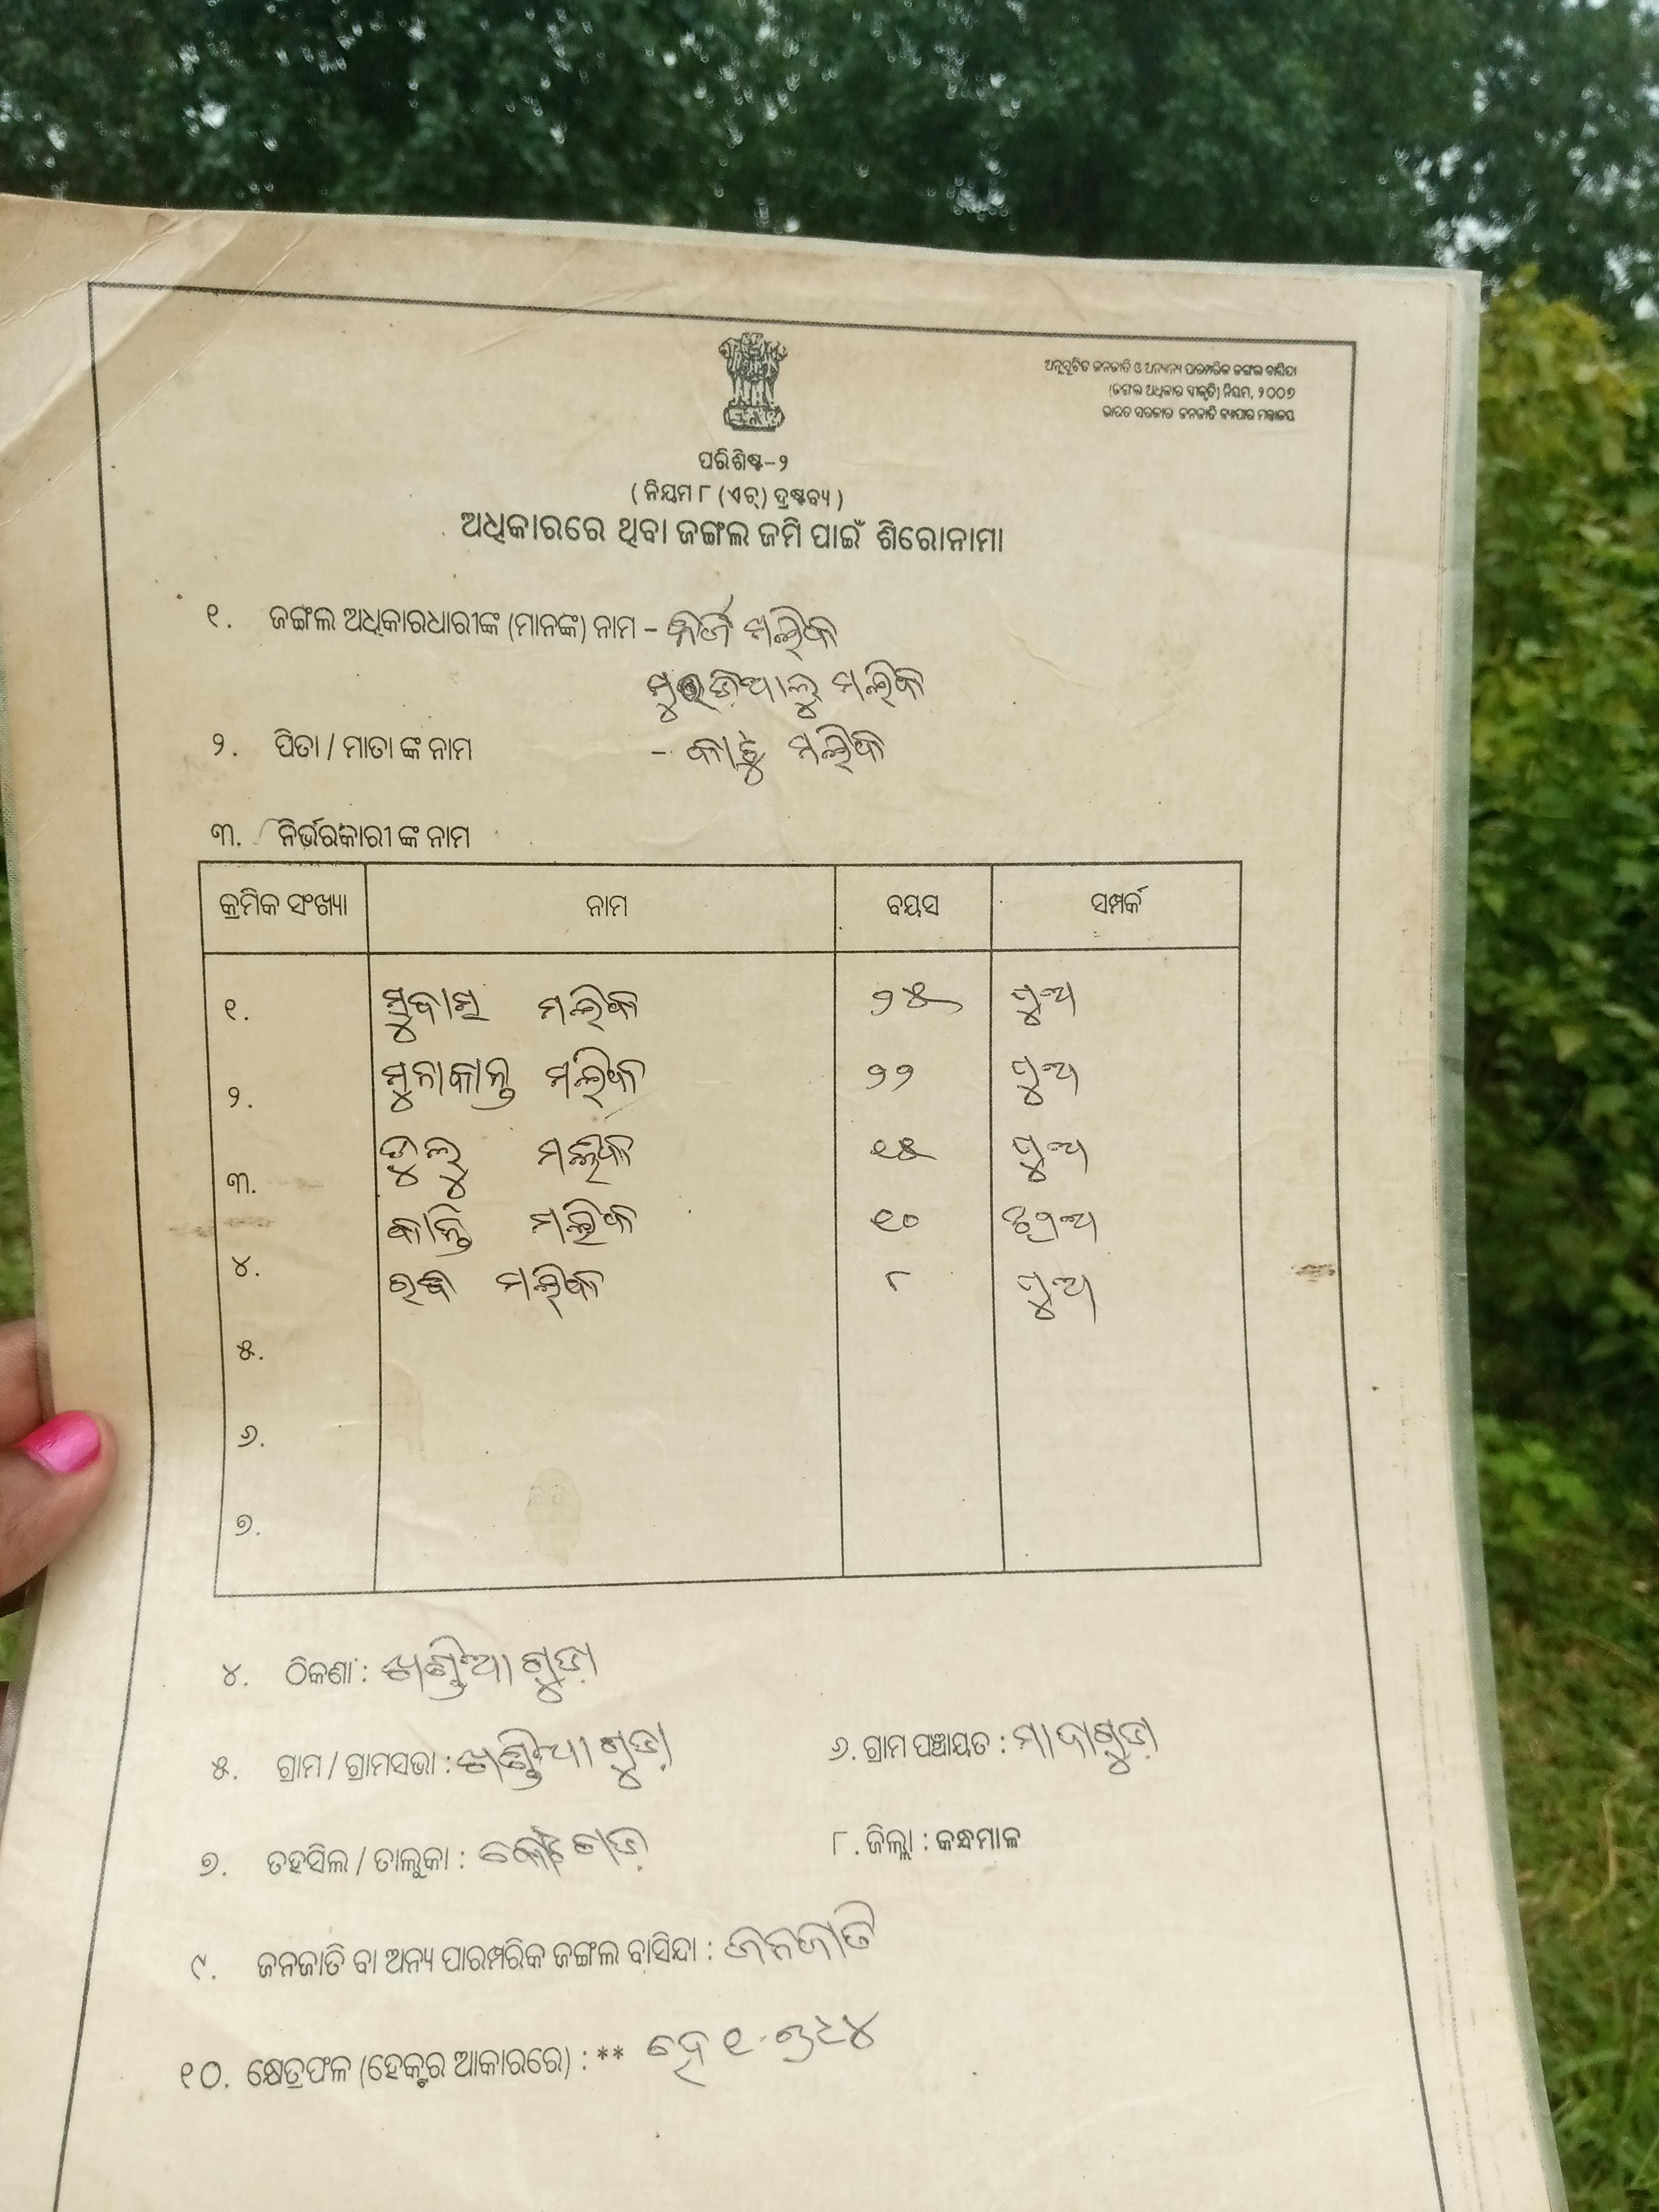 ଅନୁସୂଚିତ ଜନଜାତି ଓ ଅନ୍ୟାନ୍ୟ ପାରମ୍ପରିକ ଜଙ୍ଗଲ ବାସିନ୍ଦା
(ଜଙ୍ଗଲ ଅଧିକାର ସ୍ୱୀକୃତି) ନିୟମ, ୨୦୦୭
ଭାରତ ସରକାର ଜନଜାତି ବ୍ୟାପାର ମନ୍ତ୍ରାଳୟ
ପରିଶିଷ୍ଟ-୨
( ନିୟମ ୮ (ଏଚ୍) ଦ୍ରଷ୍ଟବ୍ୟ )
ଅଧିକାରରେ ଥିବା ଜଙ୍ଗଲ ଜମି ପାଇଁ ଶିରୋନାମା
୧. ଜଙ୍ଗଲ ଅଧିକାରଧାରୀଙ୍କ (ମାନଙ୍କ) ନାମ - ମଲ୍ଲିକ
ମଲ୍ଲିକ
୨. ପିତା / ମାତା ଙ୍କ ନାମ - ମଲ୍ଲିକ
୩. ନିର୍ଭରକାରୀ ଙ୍କ ନାମ
କ୍ରମିକ ସଂଖ୍ୟା ନାମ ବୟସ ସମ୍ପର୍କ
୧. ସୁଦାମ ମଲ୍ଲିକ ୨୫ ପୁଅ
୨. ମୁନାକାନ୍ତ ମଲ୍ଲିକ ୨୨ ପୁଅ
୩. ଡୁଲୁ ମଲ୍ଲିକ ୧୫ ପୁଅ
୪. କାନ୍ତି ମଲ୍ଲିକ ୧୦ ଝିଅ
ମଲ୍ଲିକ ୮ ପୁଅ
୫.
୬.
୭.
୪. ଠିକଣା : ଖଣ୍ଡିଆଗୁଡ଼ା
୫. ଗ୍ରାମ / ଗ୍ରାମସଭା : ଖଣ୍ଡିଆଗୁଡ଼ା ୬. ଗ୍ରାମ ପଞ୍ଚାୟତ :
୭. ତହସିଲ / ତାଲୁକା : କୋଟଗଡ଼ ୮. ଜିଲ୍ଲା : କନ୍ଧମାଳ
୯. ଜନଜାତି ବା ଅନ୍ୟ ପାରମ୍ପରିକ ଜଙ୍ଗଲ ବାସିନ୍ଦା : ଜନଜାତି
୧୦. କ୍ଷେତ୍ରଫଳ (ହେକ୍ଟର ଆକାରରେ) : ** ହେ